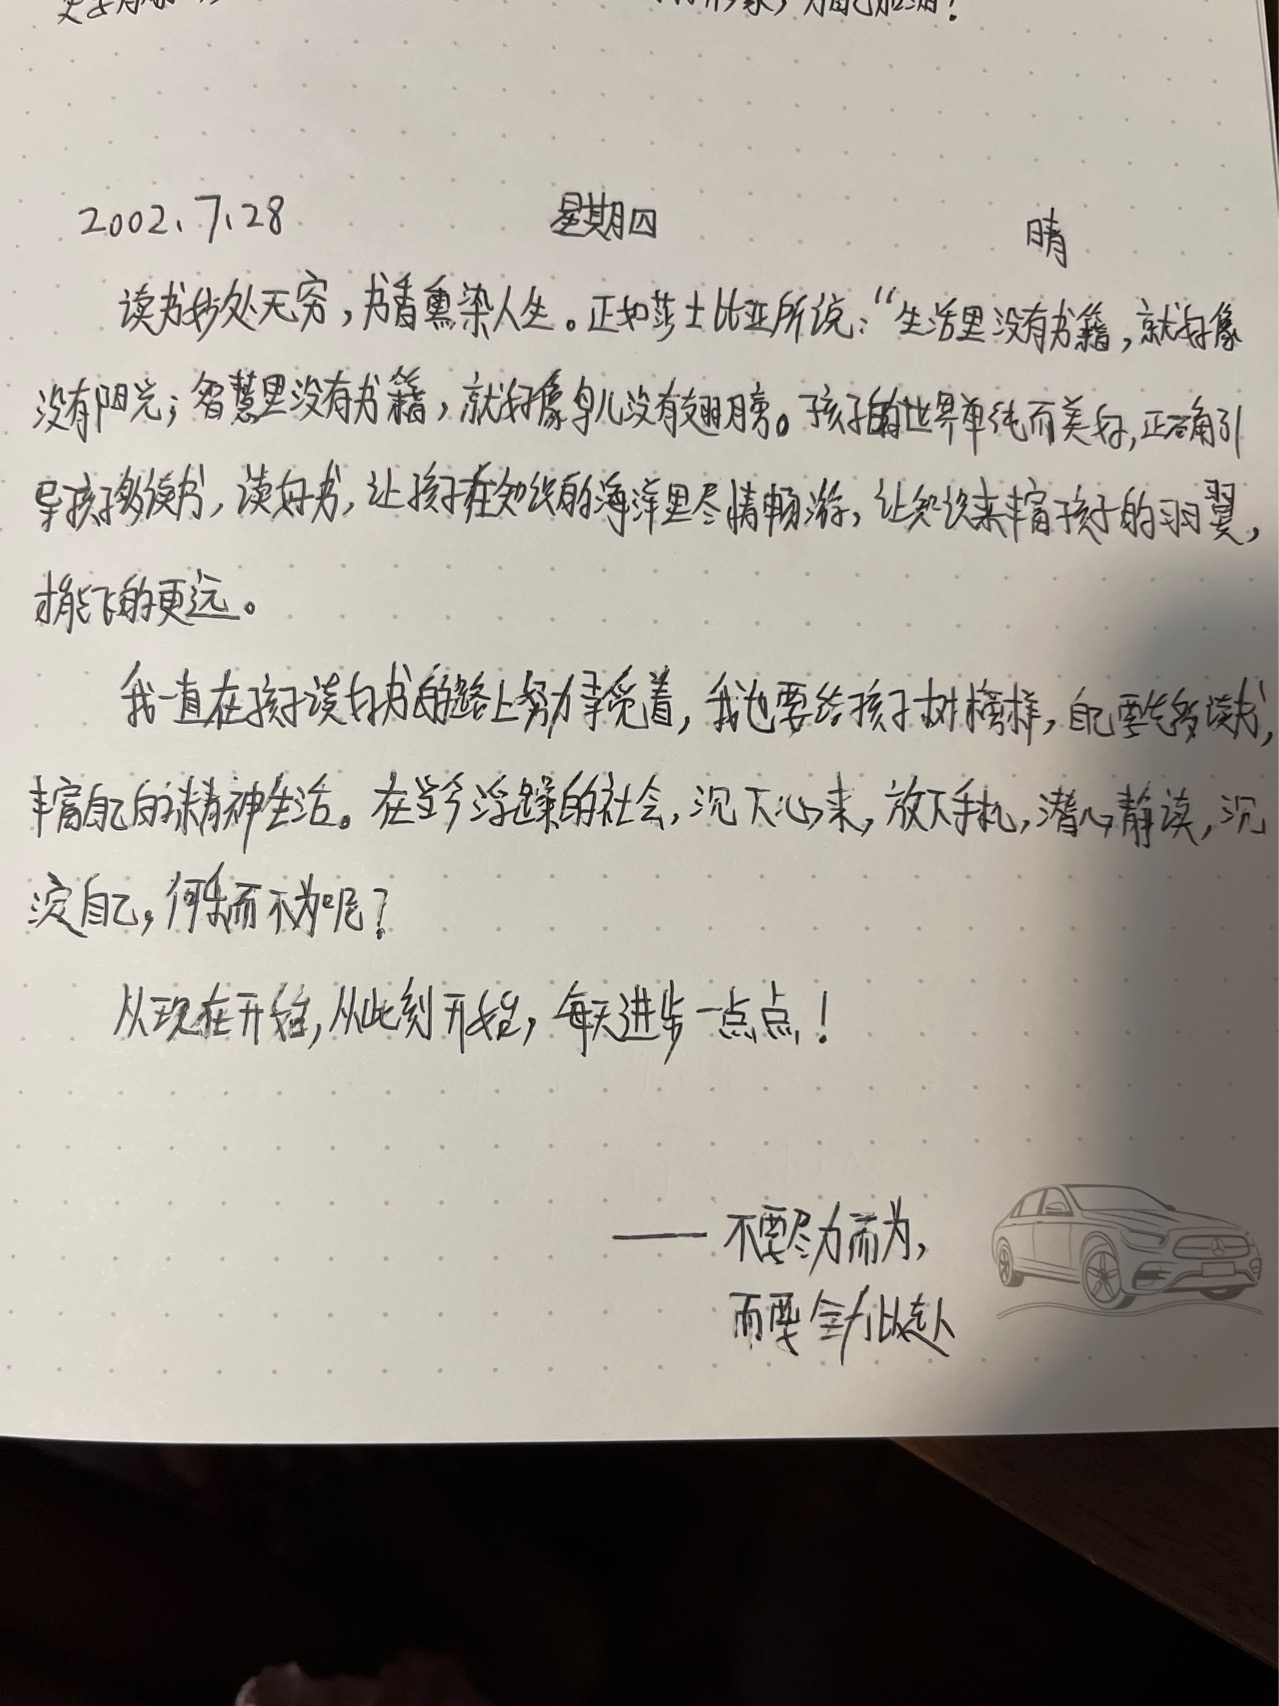 2002.7.28 星期四 晴
读书妙处无穷，书香熏染人生。正如莎士比亚所说：“生活里没有书籍，就好像
没有阳光；智慧里没有书籍，就好像鸟儿没有翅膀。孩子的世界单纯而美好，正确引
导孩子多读书，读好书，让孩子在知识的海洋里尽情畅游，让知识来丰富孩子的羽翼，
才能飞的更远。
我一直在孩子读好书的路上努力享受着，我也要给孩子树榜样，自己要先多读书，
丰富自己的精神生活。在当今浮躁的社会，沉下心来，放下手机，潜心静读，沉
淀自己，何乐而不为呢？
从现在开始，从此刻开始，每天进步一点点！
——不要尽力而为，
而要全力以赴